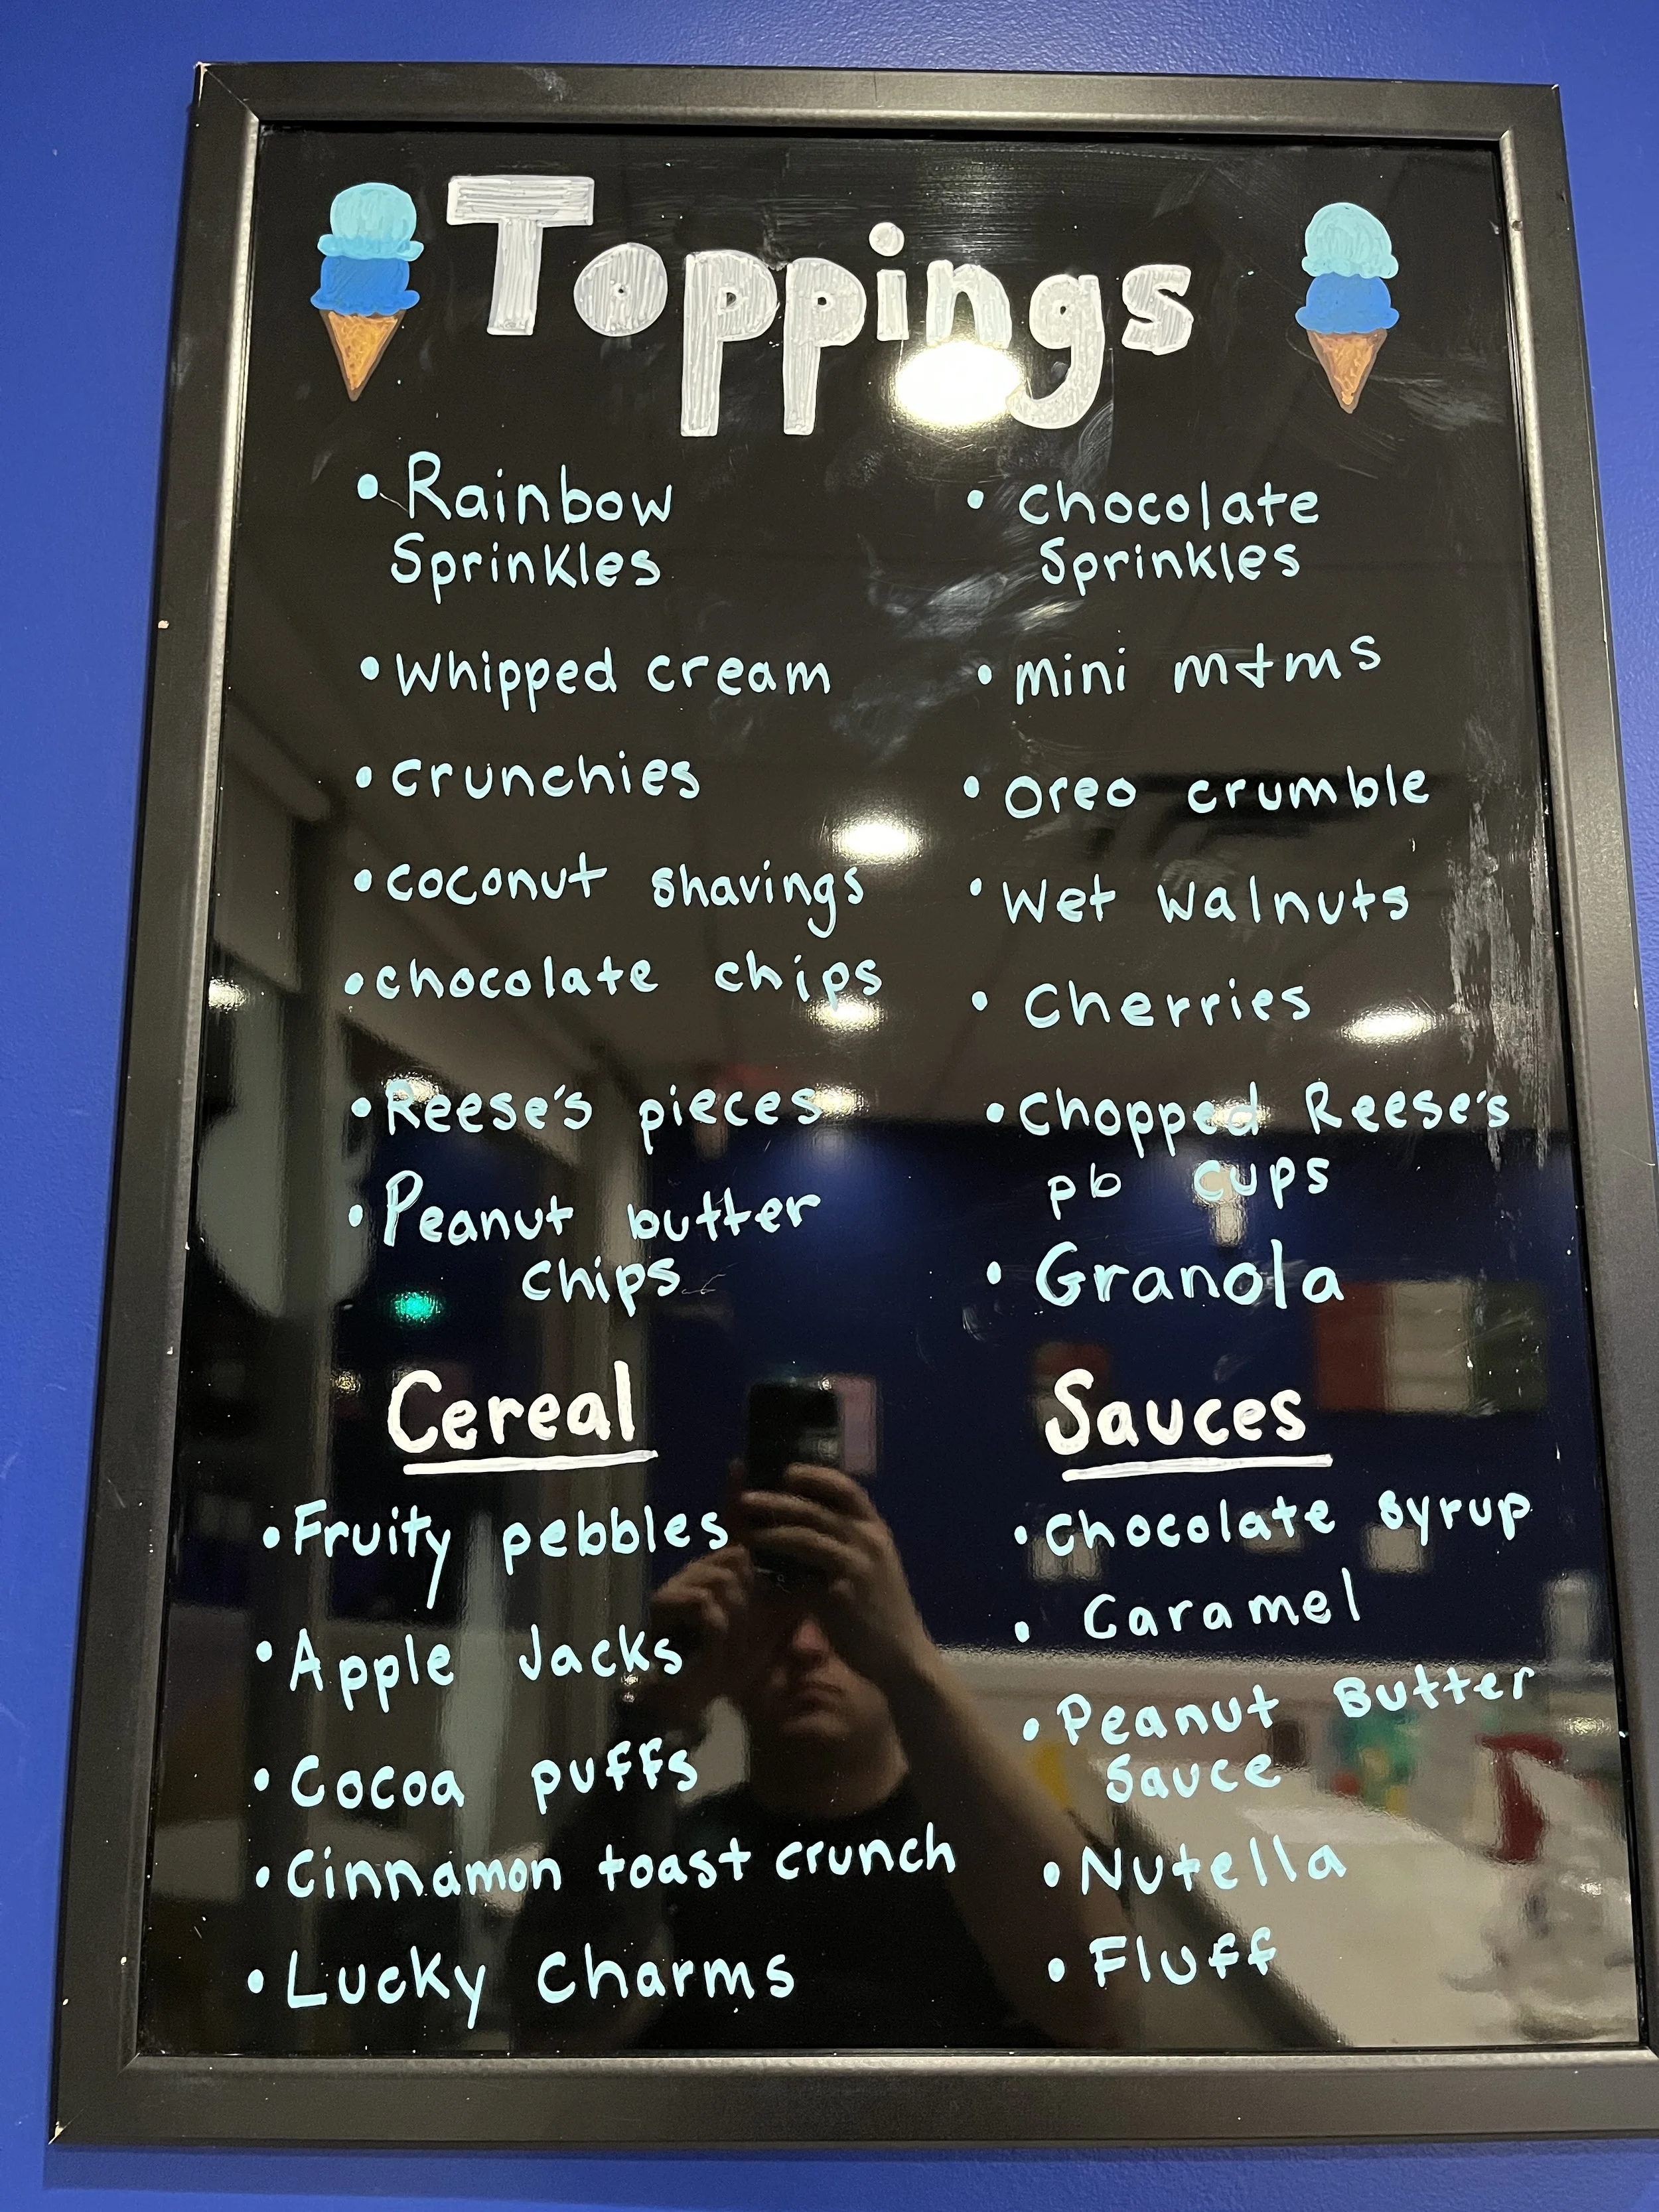 Toppings
• Rainbow
Sprinkles
• Whipped cream
• crunchies
• coconut shavings
• chocolate chips
• Reese's pieces
• Peanut butter
chips
• Chocolate
Sprinkles
• mini m+ms
• oreo crumble
• Wet walnuts
• Cherries
• Chopped Reese's
pb cups
• Granola
Cereal
• Fruity pebbles
• Apple Jacks
• Cocoa puffs
• Cinnamon toast crunch
• Lucky Charms
Sauces
• Chocolate syrup
• Caramel
• Peanut Butter
Sauce
• Nutella
• Fluff